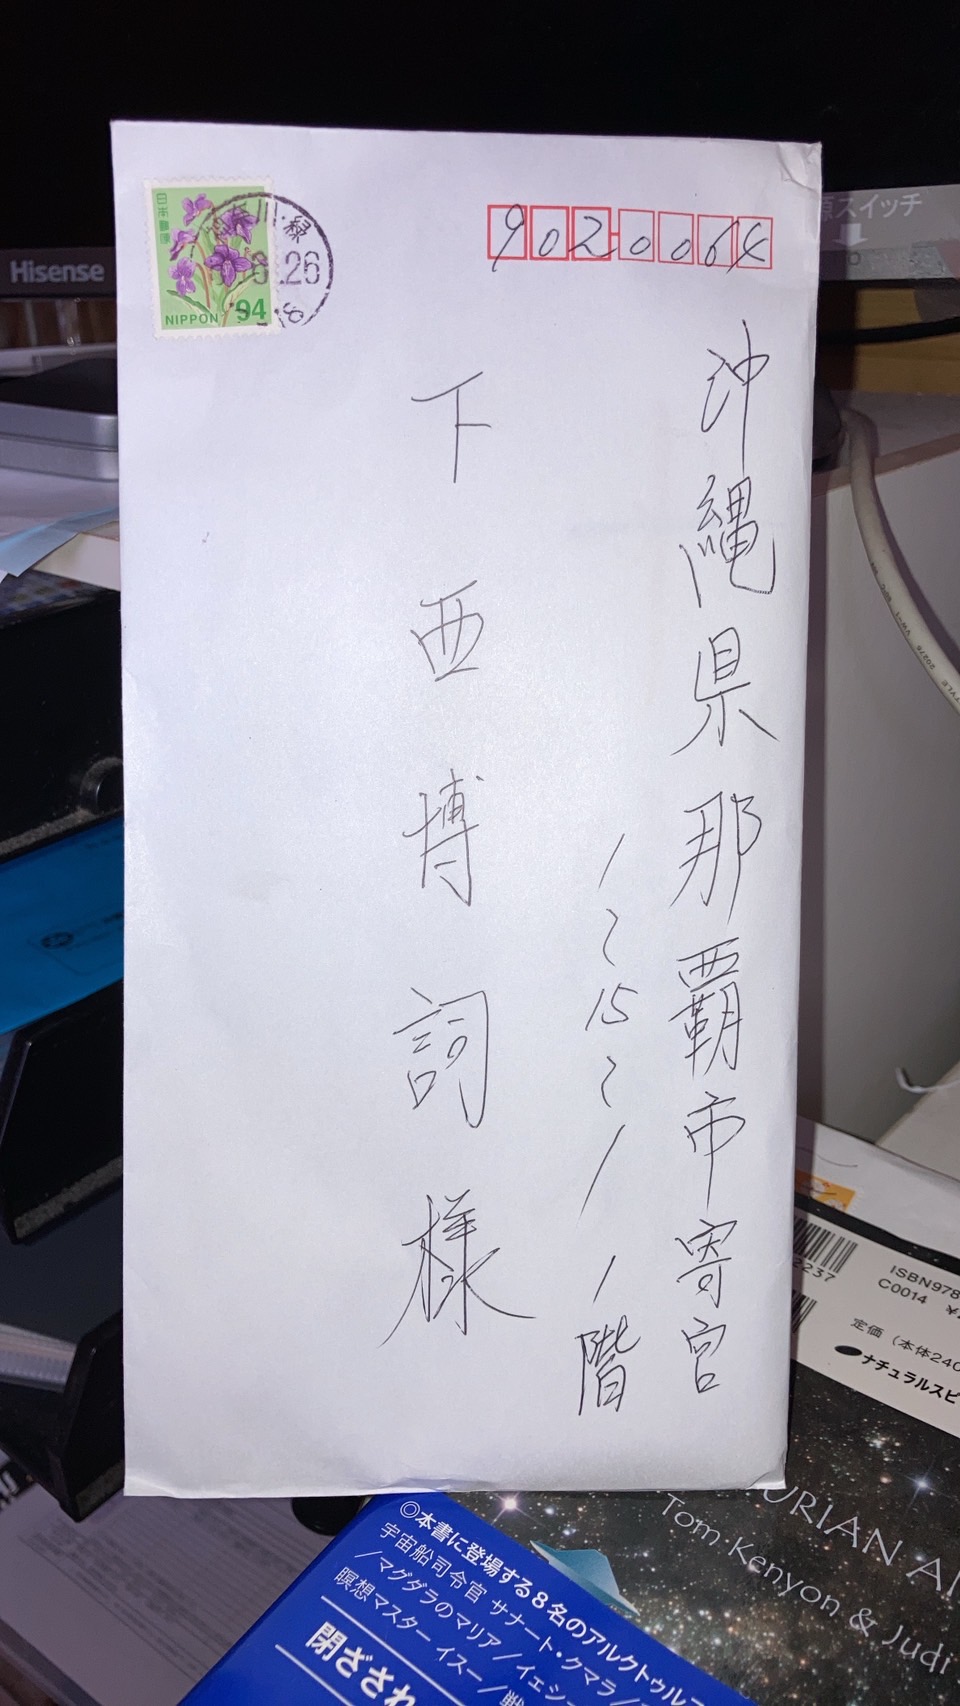 日本郵便
NIPPON 94
神奈川・緑
.26
Hisense
源スイッチ
902-0064
沖縄県那覇市寄宮
1〜15〜1 1階
下西博詞様
2237
ISBN978
C0014 ¥
定価（本体240
ナチュラルスピ
URIAN A
Tom Kenyon & Judi
◎本書に登場する8名のアルクトゥルー
宇宙船司令官 サナート・クマラ／
／マグダラのマリア／イェシ
瞑想マスター イスー／戦
閉ざされ